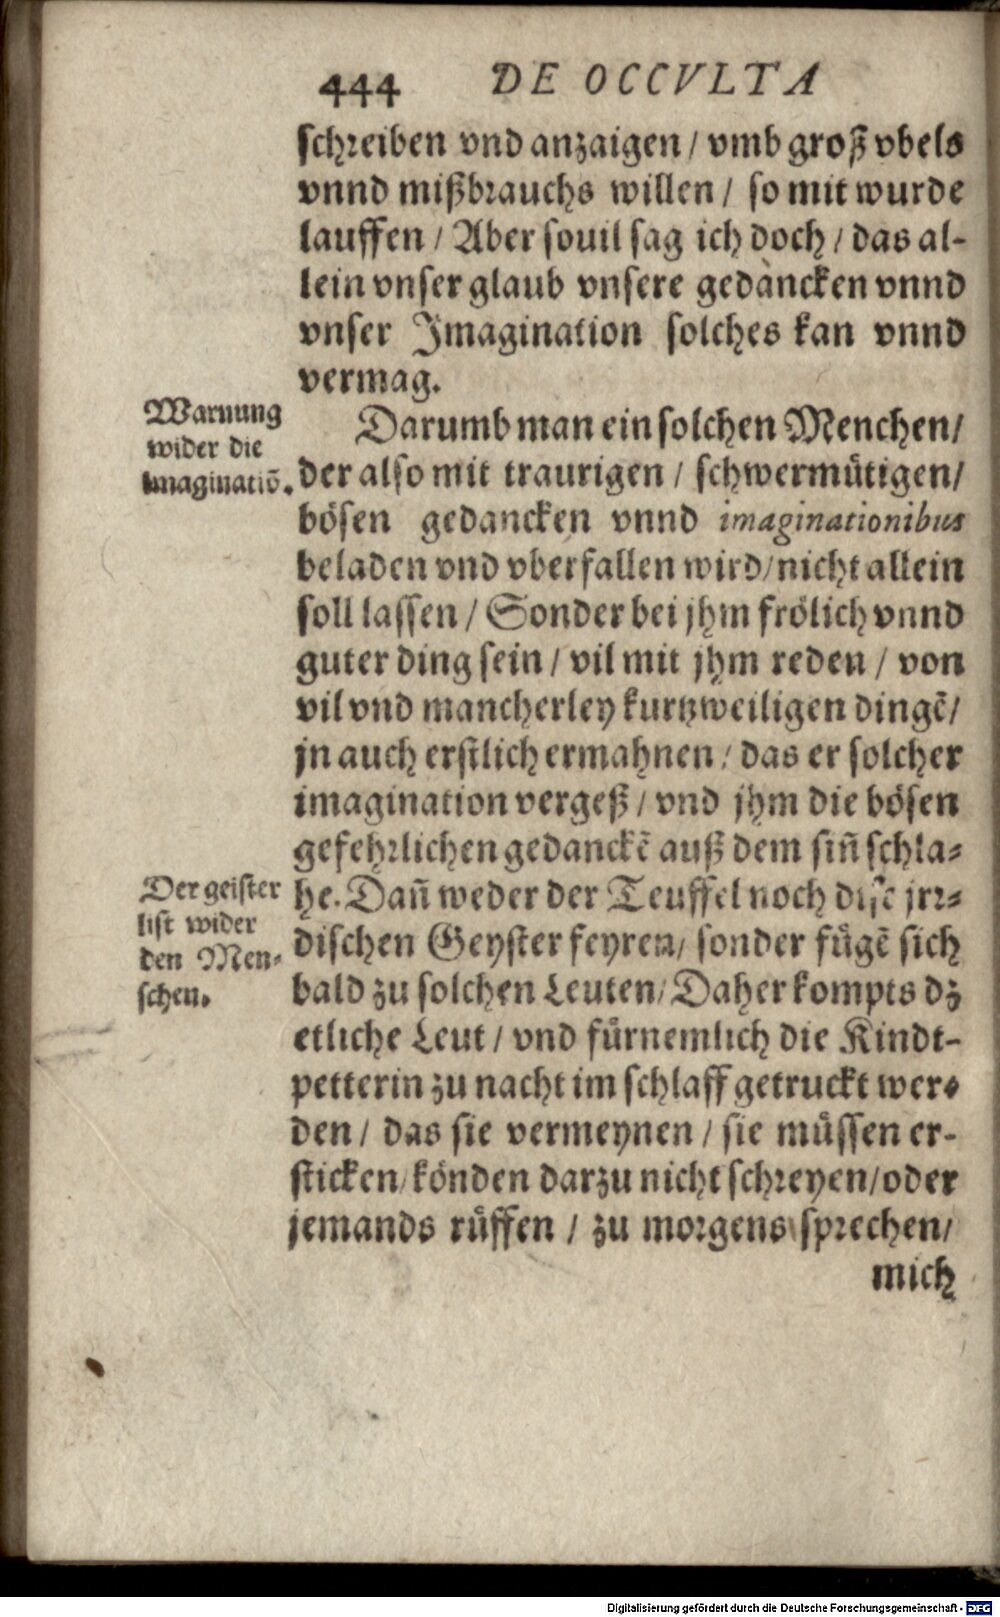 444 DE OCCVLTA
schreiben vnd anzaigen / vmb groß vbels
vnnd mißbrauchs willen / so mit wurde
lauffen / Aber souil sag ich doch / das al-
lein vnser glaub vnsere gedàncken vnnd
vnser Imagination solches kan vnnd
vermag.
Warnung
wider die
imaginatiõ.
Darumb man ein solchen Menchen /
der also mit traurigen / schwermütigen /
bösen gedancken vnnd imaginationibus
beladen vnd vberfallen wird / nicht allein
soll lassen / Sonder bei jhm frölich vnnd
guter ding sein / vil mit jhm reden / von
vil vnd mancherley kurtzweiligen dingẽ /
jn auch erstlich ermahnen / das er solcher
imagination vergeß / vnd jhm die bösen
gefehrlichen gedanckẽ auß dem siñ schla-
Der geister
list wider
den Men-
schen.
he. Dañ weder der Teuffel noch dise jrr-
dischen Geyster feyren / sonder fügẽ sich
bald zu solchen Leuten / Daher kompts dz
etliche Leut / vnd fürnemlich die Kindt-
petterin zu nacht im schlaff getruckt wer-
den / das sie vermeynen / sie müssen er-
sticken / könden darzu nicht schreyen / oder
jemands rüffen / zu morgens sprechen /
mich
Digitalisierung gefördert durch die Deutsche Forschungsgemeinschaft - DFG